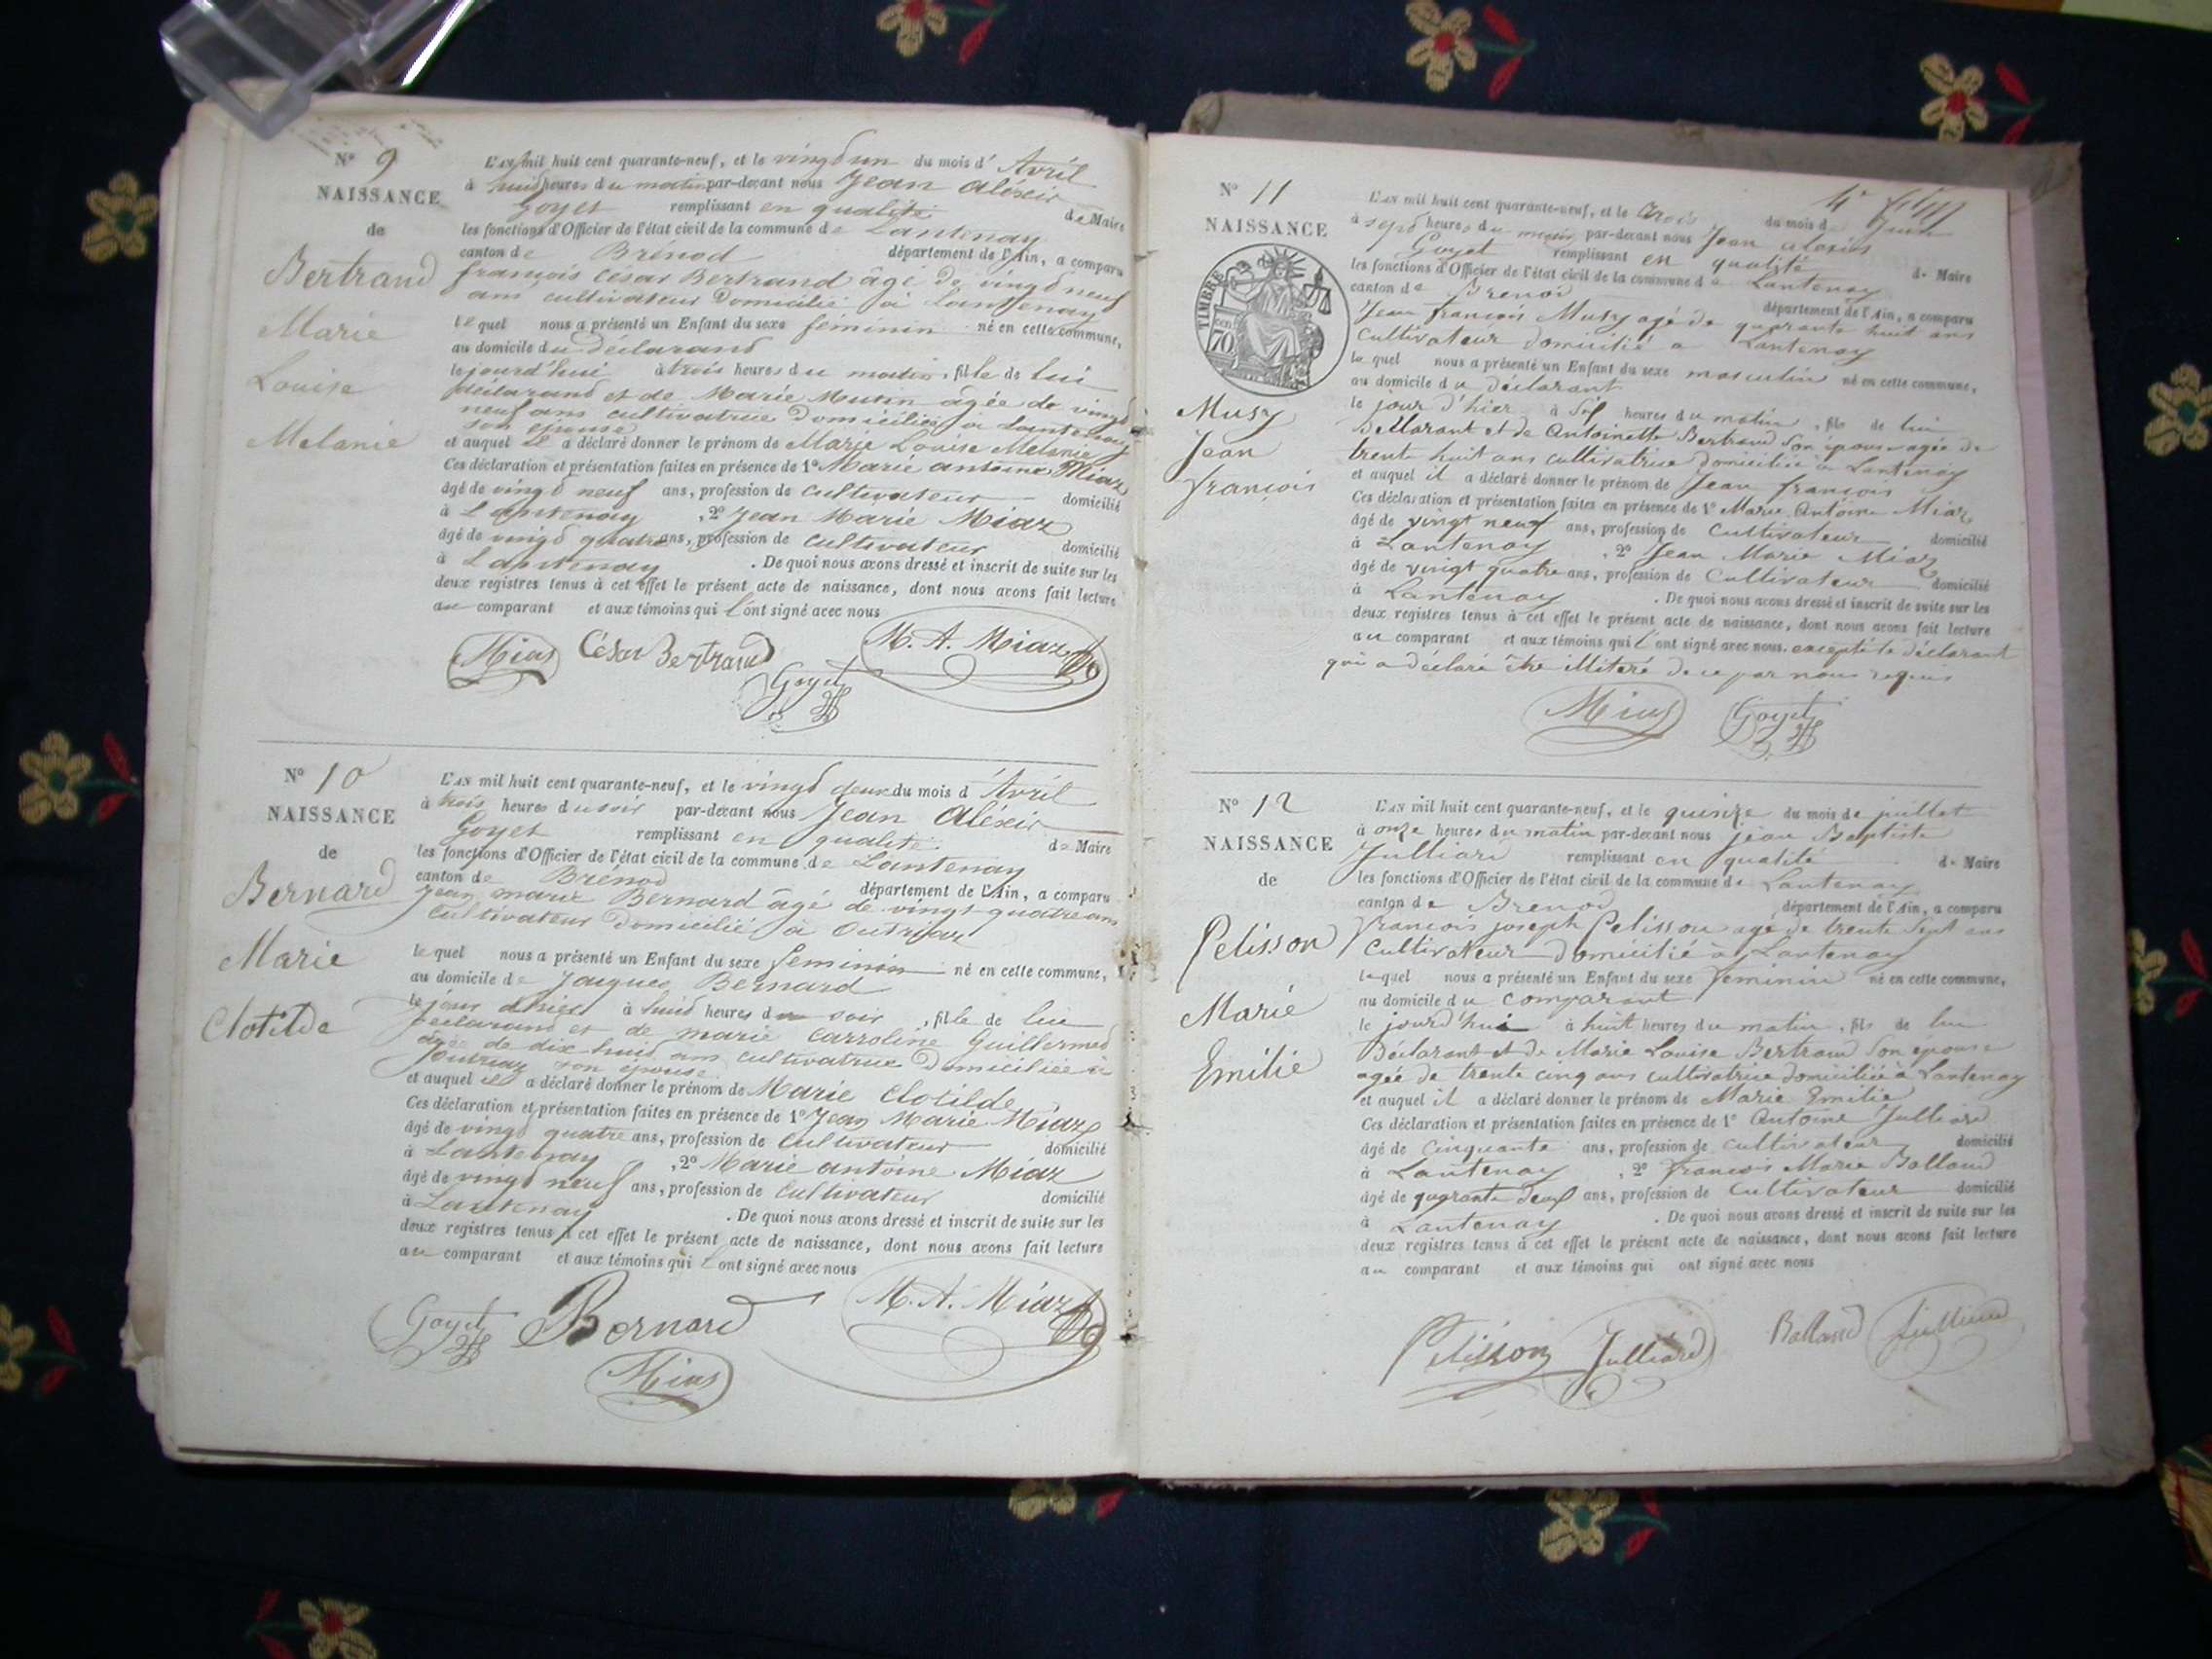 N° 9
NAISSANCE
de
Bertrand
Marie
Louise
Melanie
L'AN mil huit cent quarante-neuf, et le vingt un du mois d' Avril
à huit heures du matin par-devant nous Jean Aléxis
Goyet remplissant en qualité de Maire
les fonctions d'Officier de l'état civil de la commune de Lantenay
canton de Brénod département de l'Ain, a comparu
françois César Bertrand âgé de vingt neuf
ans cultivateur domicilié à Lantenay
lequel nous a présenté un Enfant du sexe féminin né en cette commune,
au domicile du déclarand
le jourd'hui à trois heures du matin, fille de lui
déclarand et de Marie Mutin âgée de vingt
neuf ans cultivatrice domiciliée à Lantenay
son épouse
et auquel il a déclaré donner le prénom de Marie Louise Melanie
Ces déclaration et présentation faites en présence de 1° Marie antoine Miaz
âgé de vingt neuf ans, profession de cultivateur domicilié
à Lantenay, 2° Jean Marie Miaz
âgé de vingt quatre ans, profession de cultivateur domicilié
à Lantenay. De quoi nous avons dressé et inscrit de suite sur les
deux registres tenus à cet effet le présent acte de naissance, dont nous avons fait lecture
au comparant et aux témoins qui l'ont signé avec nous
Miaz César Bertrand M. A. Miaz
Goyet
N° 10
NAISSANCE
de
Bernard
Marie
Clotilde
L'AN mil huit cent quarante-neuf, et le vingt deux du mois d'Avril
à trois heures du soir par-devant nous Jean Aléxis
Goyet remplissant en qualité de Maire
les fonctions d'Officier de l'état civil de la commune de Lantenay
canton de Brénod département de l'Ain, a comparu
Jean marie Bernard âgé de vingt quatre ans
cultivateur domicilié à Outriaz
lequel nous a présenté un Enfant du sexe feminin né en cette commune,
au domicile de Jacques Bernard
le jour d'hier à huit heures du soir, fille de lui
déclarand et de marie Carroline Guillermet
âgée de dix huit ans cultivatrice domiciliée à
Outriaz son épouse
et auquel il a déclaré donner le prénom de Marie Clotilde
Ces déclaration et présentation faites en présence de 1° Jean Marie Miaz
âgé de vingt quatre ans, profession de cultivateur domicilié
à Lantenay, 2° Marie antoine Miaz
âgé de vingt neuf ans, profession de cultivateur domicilié
à Lantenay. De quoi nous avons dressé et inscrit de suite sur les
deux registres tenus à cet effet le présent acte de naissance, dont nous avons fait lecture
au comparant et aux témoins qui l'ont signé avec nous
Goyet Bernard M. A. Miaz
Miaz
N° 11
NAISSANCE
TIMBRE
70
Musy
Jean
françois
L'AN mil huit cent quarante-neuf, et le trois du mois de Juin
à sept heures du matin par-devant nous Jean alexis
Goyet remplissant en qualité de Maire
les fonctions d'Officier de l'état civil de la commune de Lantenay
canton de Brenod département de l'Ain, a comparu
Jean françois Musy agé de quarante huit ans
cultivateur domicilié a Lantenay
lequel nous a présenté un Enfant du sexe masculin né en cette commune,
au domicile du déclarant
le jour d'hier à six heures du matin, fils de lui
Déclarant et de Antoinette Bertrand son épouse agée de
trente huit ans cultivatrice domiciliée a Lantenay
et auquel il a déclaré donner le prénom de Jean françois
Ces déclaration et présentation faites en présence de 1° Marie Antoine Miaz
âgé de vingt neuf ans, profession de Cultivateur domicilié
à Lantenay, 2° Jean Marie Miaz
âgé de vingt quatre ans, profession de Cultivateur domicilié
à Lantenay. De quoi nous avons dressé et inscrit de suite sur les
deux registres tenus à cet effet le présent acte de naissance, dont nous avons fait lecture
au comparant et aux témoins qui l'ont signé avec nous. excepté le déclarant
qui a déclaré être illiteré de ce par nous requis
Miaz Goyet
N° 12
NAISSANCE
de
Pelisson
Marie
Emilie
L'AN mil huit cent quarante-neuf, et le quinze du mois de juillet
à onze heures du matin par-devant nous jean Baptiste
Julliard remplissant en qualité de Maire
les fonctions d'Officier de l'état civil de la commune de Lantenay
canton de Brenod département de l'Ain, a comparu
françois joseph Pelisson agé de trente sept ans
cultivateur domicilié à Lantenay
lequel nous a présenté un Enfant du sexe feminin né en cette commune,
au domicile du comparant
le jourd'hui à huit heures du matin, fils de lui
Déclarant et de Marie Louise Bertrand son épouse
agée de trente cinq ans cultivatrice domiciliée à Lantenay
et auquel il a déclaré donner le prénom de Marie Emilie
Ces déclaration et présentation faites en présence de 1° Antoine Julliard
âgé de Cinquante ans, profession de cultivateur domicilié
à Lantenay, 2° françois Marie Balland
âgé de quarante deux ans, profession de Cultivateur domicilié
à Lantenay. De quoi nous avons dressé et inscrit de suite sur les
deux registres tenus à cet effet le présent acte de naissance, dont nous avons fait lecture
au comparant et aux témoins qui ont signé avec nous
Pelisson Julliard Balland Julliard